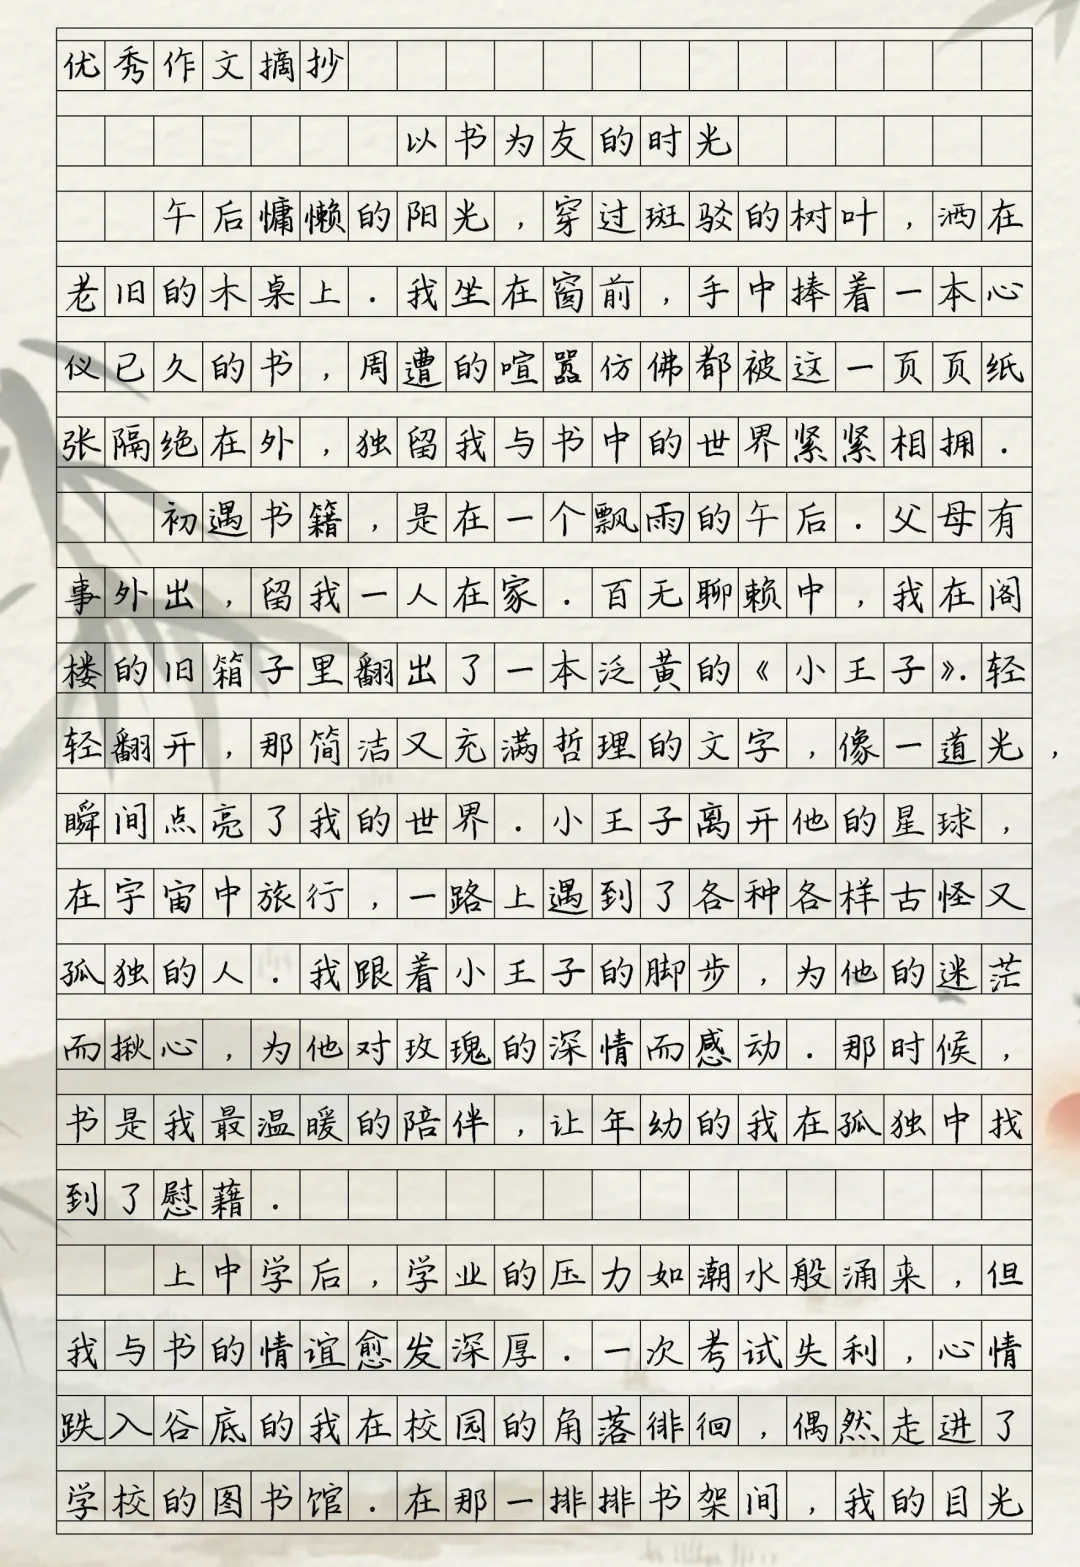 优秀作文摘抄
以书为友的时光
午后慵懒的阳光，穿过斑驳的树叶，洒在
老旧的木桌上．我坐在窗前，手中捧着一本心
仪已久的书，周遭的喧嚣仿佛都被这一页页纸
张隔绝在外，独留我与书中的世界紧紧相拥．
初遇书籍，是在一个飘雨的午后．父母有
事外出，留我一人在家．百无聊赖中，我在阁
楼的旧箱子里翻出了一本泛黄的《小王子》．轻
轻翻开，那简洁又充满哲理的文字，像一道光，
瞬间点亮了我的世界．小王子离开他的星球，
在宇宙中旅行，一路上遇到了各种各样古怪又
孤独的人．我跟着小王子的脚步，为他的迷茫
而揪心，为他对玫瑰的深情而感动．那时候，
书是我最温暖的陪伴，让年幼的我在孤独中找
到了慰藉．
上中学后，学业的压力如潮水般涌来，但
我与书的情谊愈发深厚．一次考试失利，心情
跌入谷底的我在校园的角落徘徊，偶然走进了
学校的图书馆．在那一排排书架间，我的目光